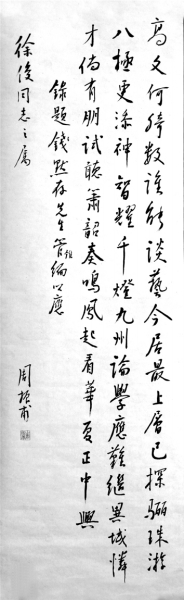 高文何绮数谁能談藝今居最上層已探驪珠游
八極更添神智耀千燈九州論學應難繼異域憐
才倘有朋試聽簫韶奏鳴鳳起看華夏正中興
錄題錢默存先生管錐編以應
徐俊同志之屬
周振甫